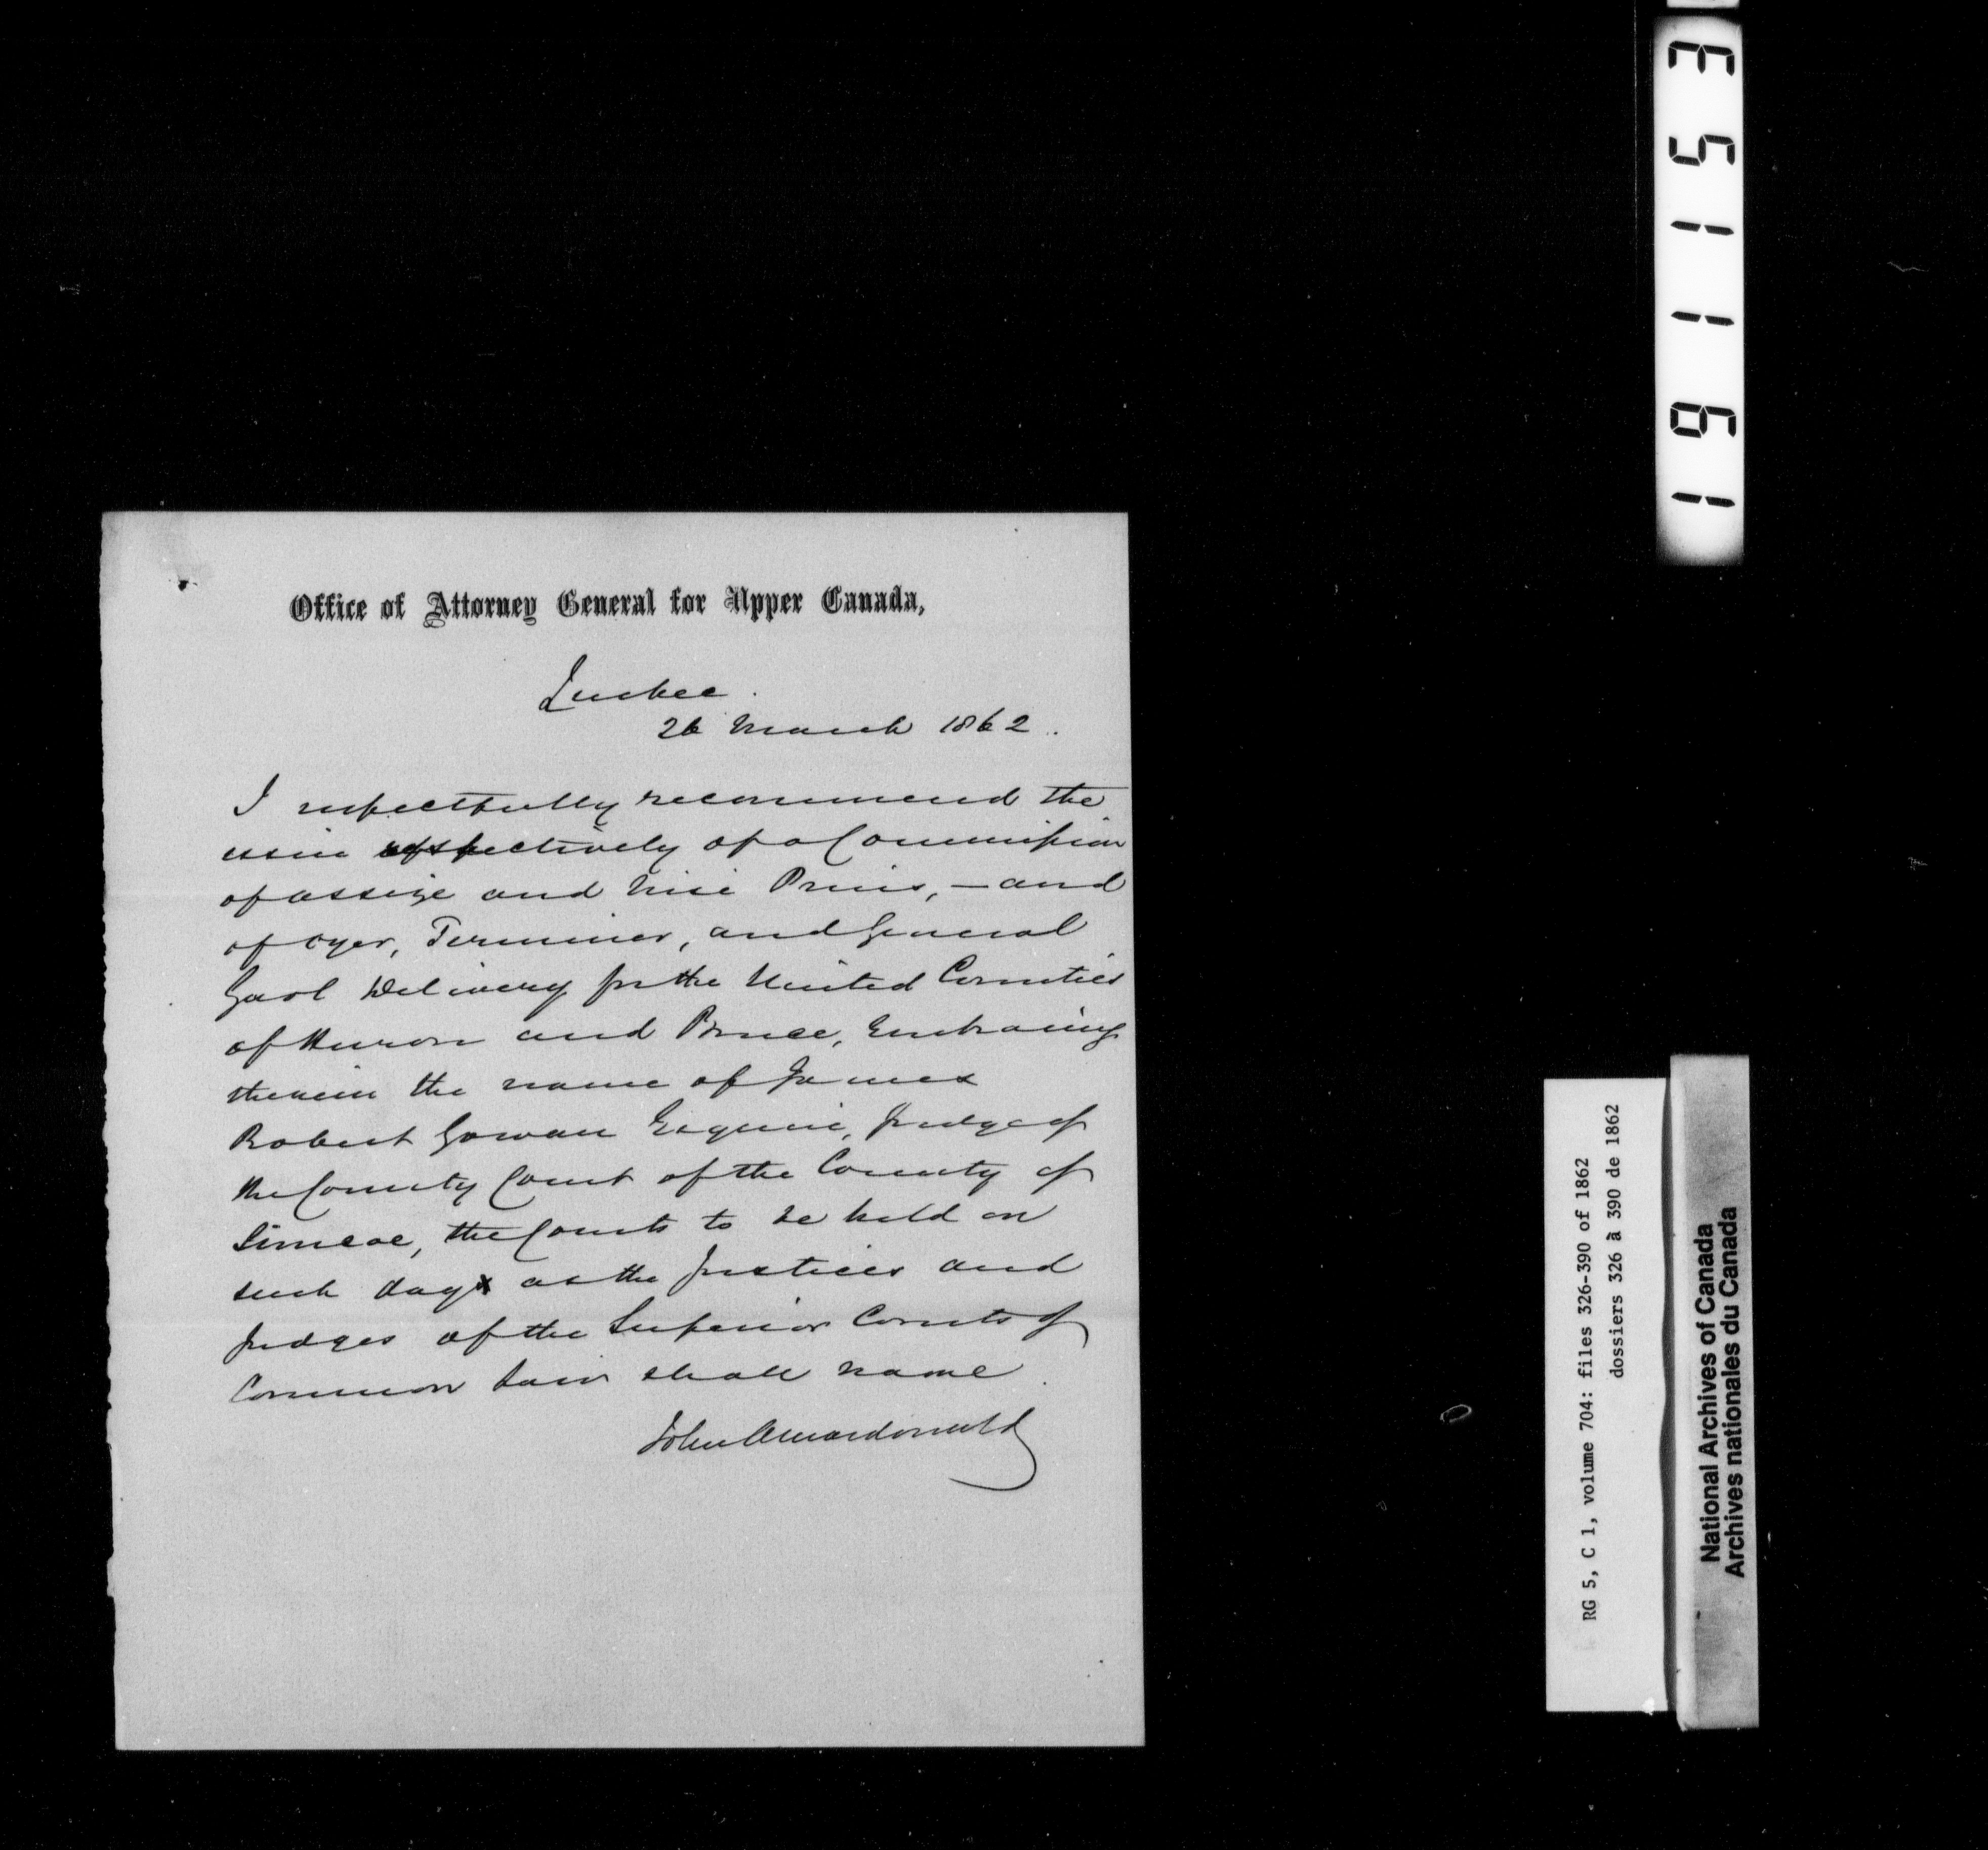 Office of Attorney General for Upper Canada,
Quebec.
26 March 1862.
I respectfully recommend the
issue respectively of a Commission
of assize and Nisi Prius, — and
of oyer, Terminer, and General
Gaol Delivery for the United Counties
of Huron and Bruce, Embracing
therein the name of James
Robert Gowan Esquire, Judge of
the County Court of the County of
Simcoe, the Courts to be held on
such days as the Justices and
Judges of the Superior Courts of
Common Law shall name.
John A Macdonald
351161
RG 5, C 1, volume 704: files 326-390 of 1862
dossiers 326 à 390 de 1862
National Archives of Canada
Archives nationales du Canada